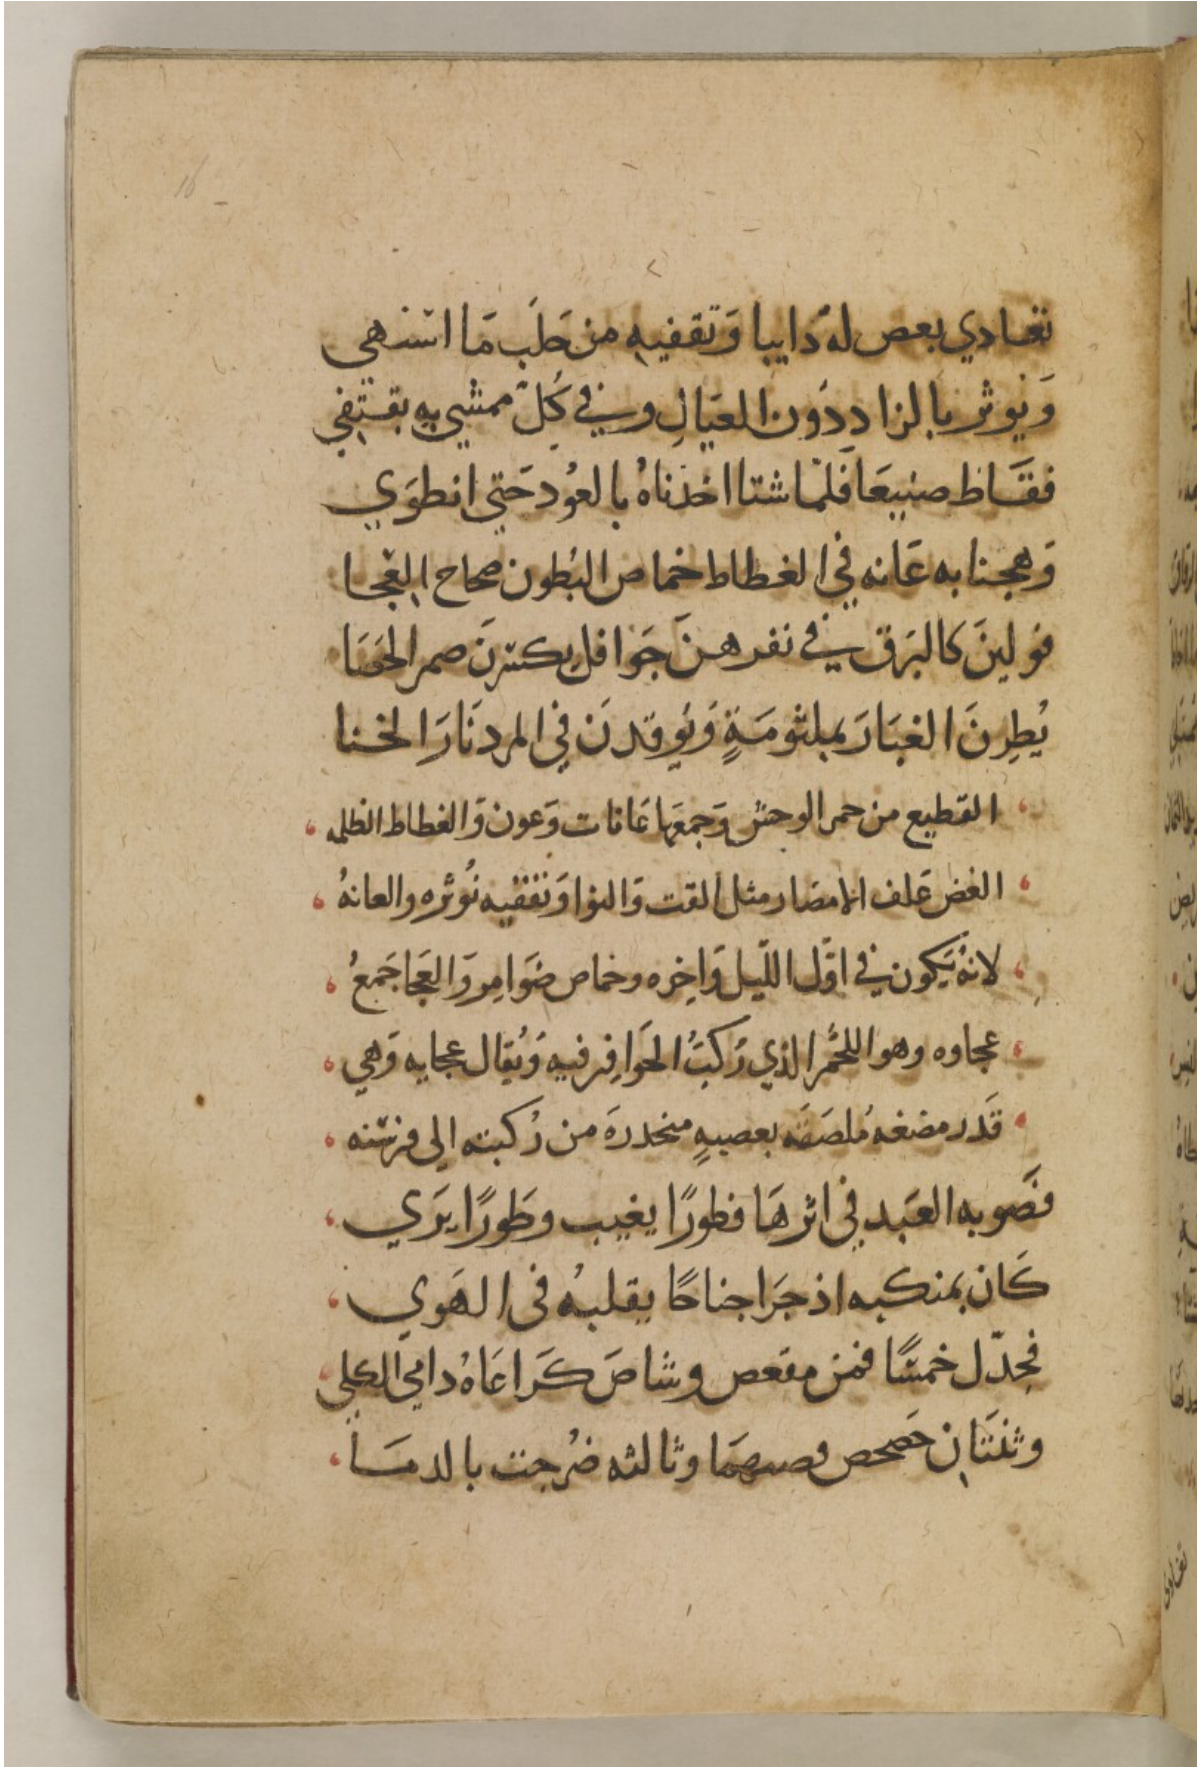 نغادي بعص له دايبا وَتقفيهِ من حَلَب مَا اشتهي
وَنوثر بالزاد دوُن العيَالِ وفي كُلّ ممشي بهِ يقتفي
فقَاظ صنيعَا فَلمّا شتا اخذناهُ بالعوُد حَتي انطوَي
وَهجنا به عَانه في الغطاط خماص البُطون صحاح العُجا
فولينَ كالبَرق في نفرهنَّ جَوَافلِ يكسّرنَ صمر الحَصَا
يُطِرنَ الغبَارَ بملثومَةٍ وَيوقدنَ في المرو نَارَ الخنا
القطيع من حمر الوحش وَجمعَها عَانات وَعون وَالغطاط الظلمه
الغض عَلف الامصار مثل القت وَالنوا وَنقفيه نُوثره والعانهُ
لانهُ يَكون في اوّل اللّيل وَاخِره وخماص ضوَامِر وَالعجَا جَمعُ
عجاوه وهو اللحم الذي رَكبَتُ الحَوَافِر فيهِ وَيُقال عجايه وَهي
قَدر مضغه مُلصَقَه بعصبهٍ منحدرَه من رُكبته الي فرسنه
فصَوبه العَبد في اثرهَا فطورًا يغيب وطَورًا يَري
كَان بمنكبه اذ جَرَا جناحًا يقلبهُ في الهَوي
فجدّل خمسًا فمن مقعص وشاصَ كَرَاعَاهُ دامي الكلي
وثنتَانِ خَصحص قصبهمَا وثالثه ضُرجت بالدمَا